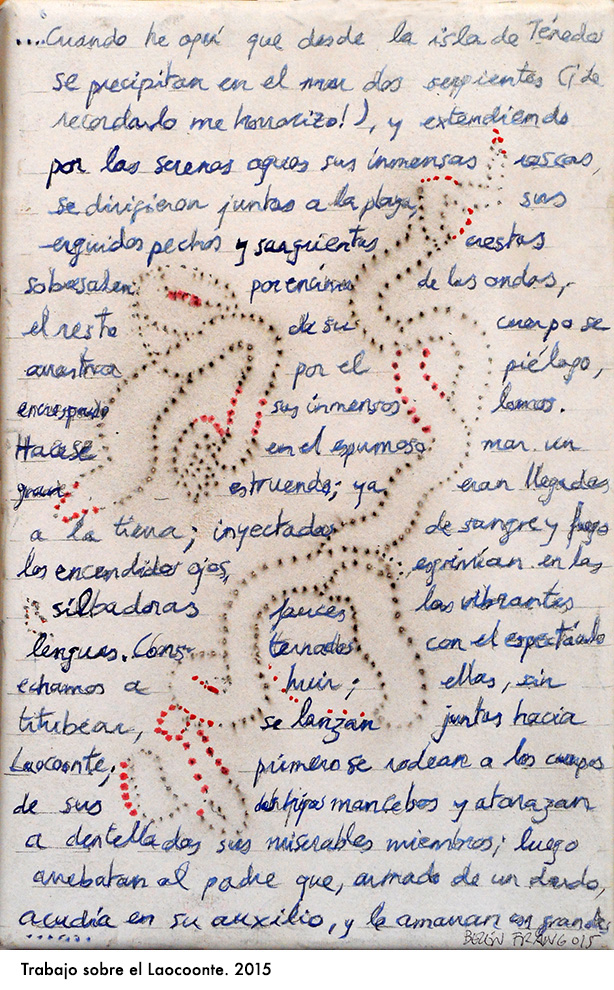 ....Cuando he aquí que desde la isla de Ténedos
se precipitan en el mar dos serpientes (¡de
recordarlo me horrorizo!), y extendiendo
por las serenas aguas sus inmensas roscas,
se dirigieron juntas a la playa, sus
erguidos pechos y sangrientas crestas
sobresalen por encima de las ondas,
el resto de su cuerpo se
arrastra por el piélago,
encrespando sus inmensos lomos.
Hácese en el espumoso mar un
gran estruendo; ya eran llegadas
a la tierra; inyectados de sangre y fuego
los encendidos ojos, esgrimían en las
silbadoras fauces las vibrantes
lenguas. Cons- ternados con el espectáculo
echamos a huir; ellas, sin
titubear, se lanzan juntas hacia
Laocoonte, primero se rodean a los cuerpos
de sus dos hijos mancebos y atarazan
a dentelladas sus miserables miembros; luego
arrebatan al padre que, armado de un dardo,
acudía en su auxilio, y le amarran con grandes
......
BELÉN FRANG 015
Trabajo sobre el Laocoonte. 2015